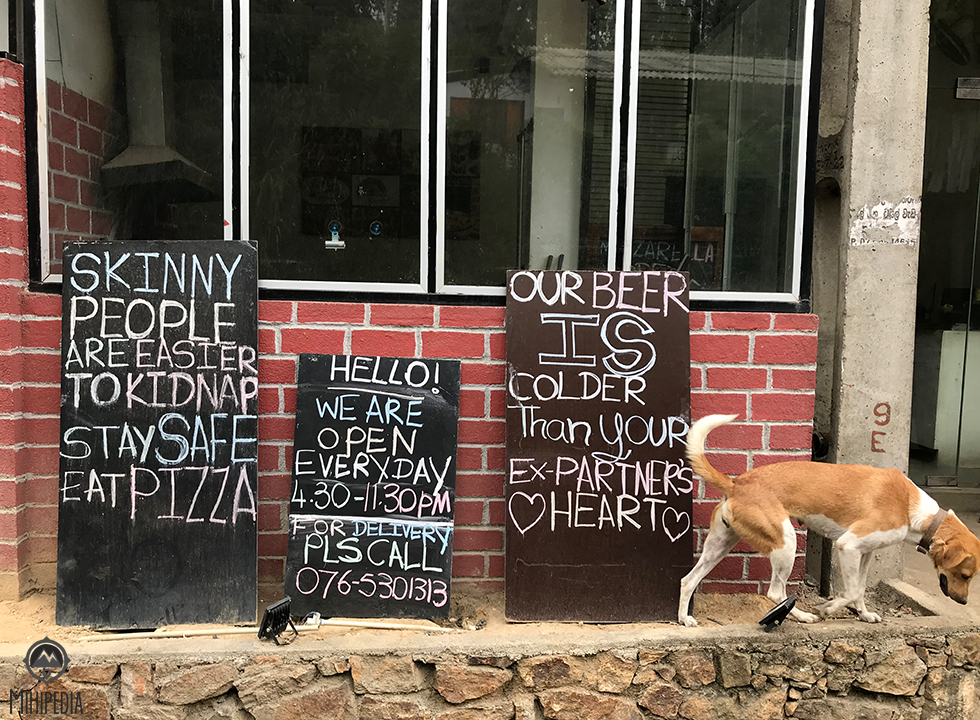 SKINNY
PEOPLE
ARE EASIER
TO KIDNAP
STAY SAFE
EAT PIZZA
HELLO!
WE ARE
OPEN
EVERYDAY
4.30-11.30PM
FOR DELIVERY
PLS CALL
076-5301313
OUR BEER
IS
COLDER
Than YOUR
EX-PARTNER'S
HEART
9
E
MIHIPEDIA